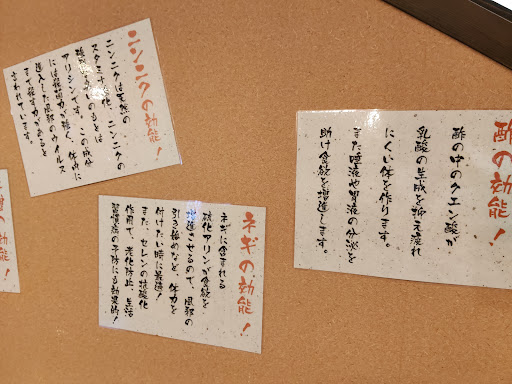 酢の効能！
酢の中のクエン酸が、
乳酸の生成を抑え疲れ
にくい体を作ります。
また唾液や胃液の分泌を
助け食欲を増進します。
ネギの効能！
ネギに含まれる
硫化アリシンが食欲を
増進させるので、風邪の
引き始めなど、体力を
付けたい時に最適！
また、セレンの抗酸化
作用で、老化防止、生活
習慣病の予防にも効果的！
ニンニクの効能！
ニンニクは天然の
スタミナ
ニンニクの
もとは
アリシンです。この成分
には殺菌力が強く、体内に
進入した風邪のウイルス
まで殺す力があると
言われています。
の効能！